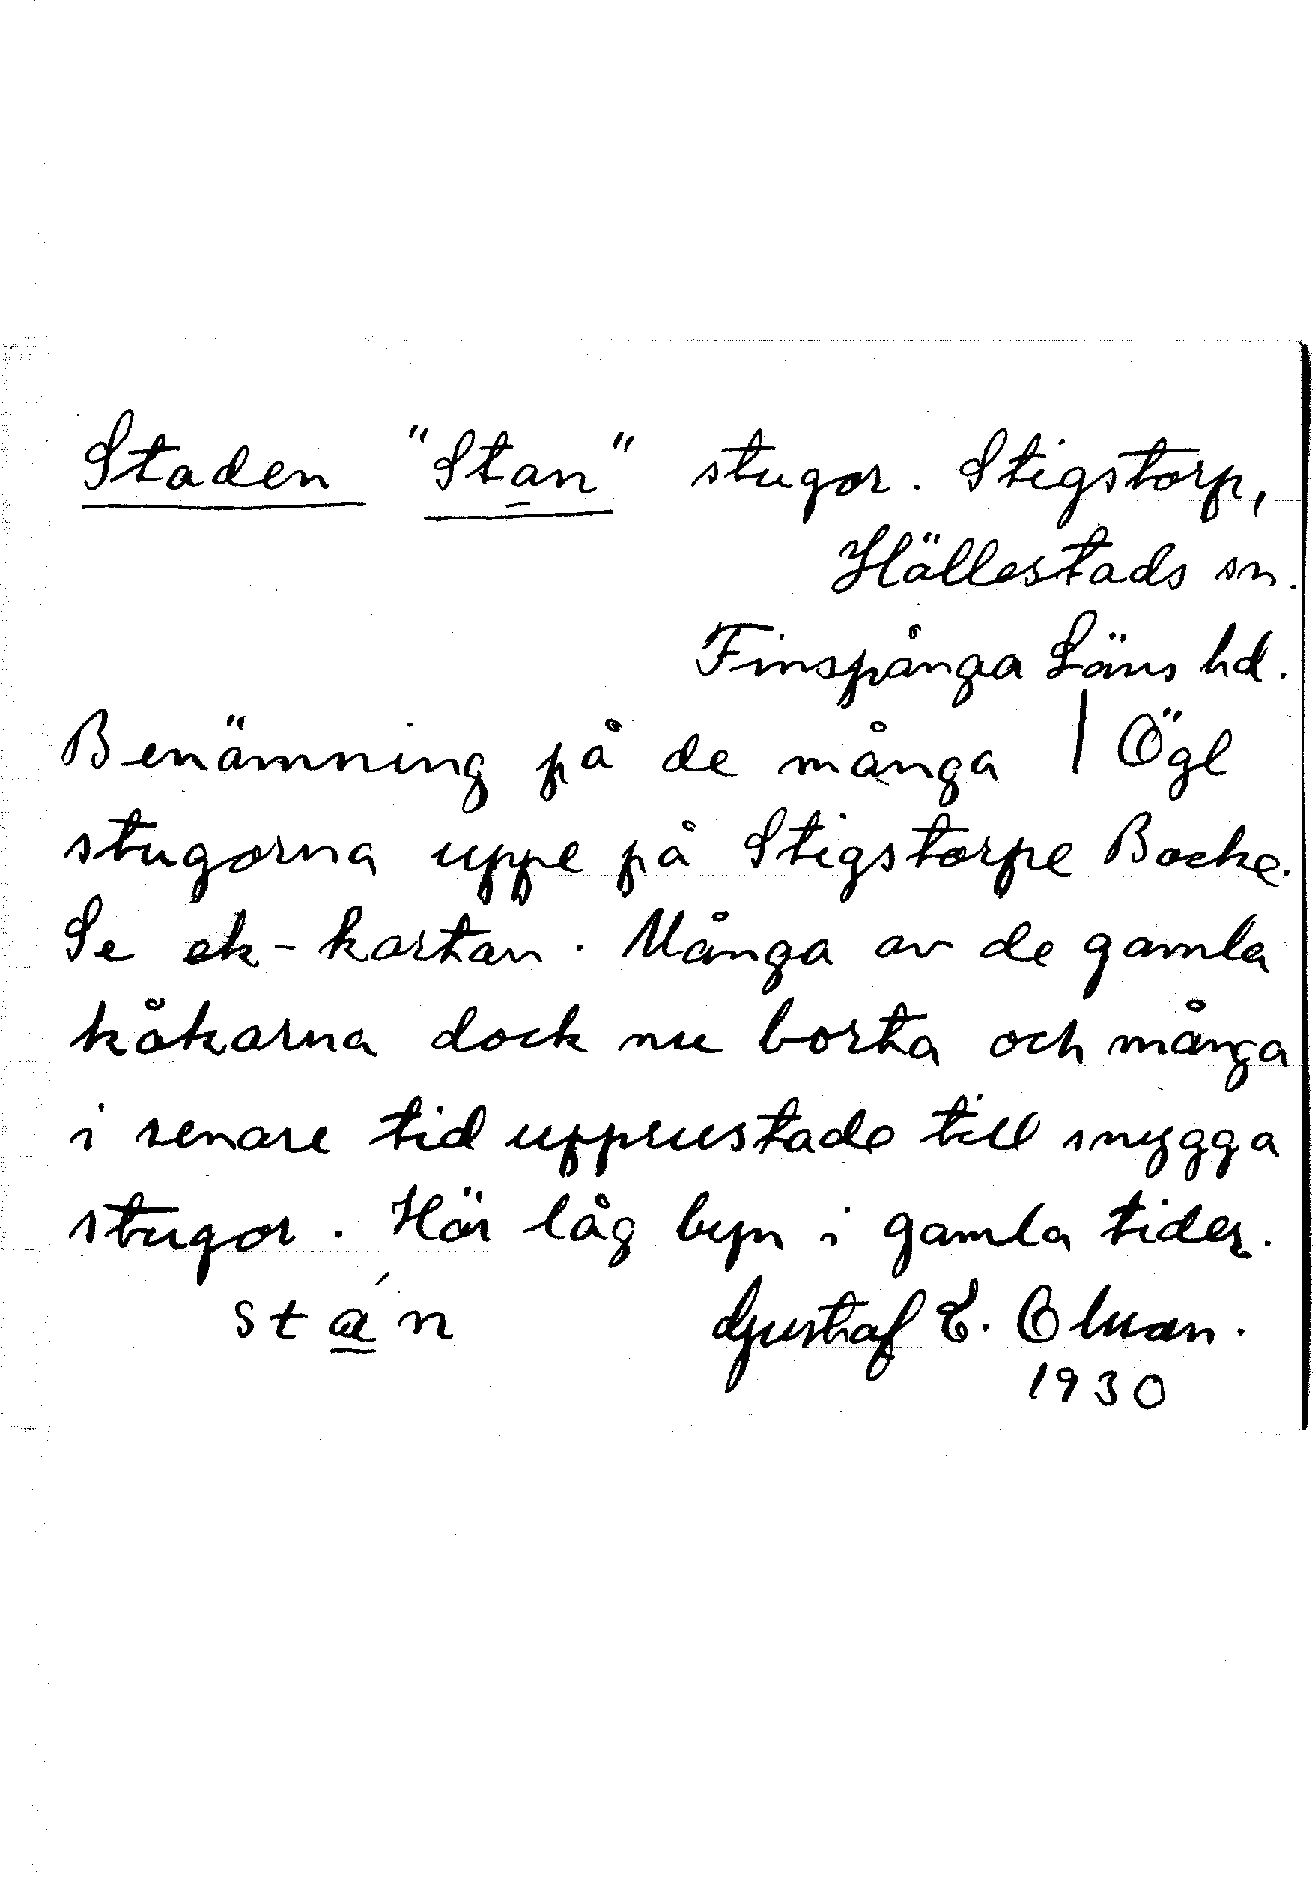 Staden "Stan" stugor. Stigstorp,
Hällestads sn.
Finspånga Läns hd.
Benämning på de många | Ögl
stugorna uppe på Stigstorpe Backe.
Se ek-kartan. Många av de gamla
kåkarna dock nu borta och många
i senare tid upprustade till snygga
stugor. Här låg byn i gamla tider.
stán Gustaf E.
1930